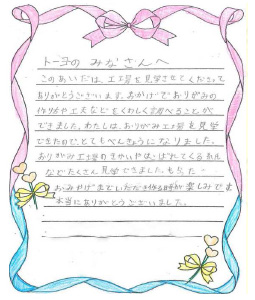 トーヨの みなさんへ
このあいだは、工場を見学させてくださって
ありがとうございます。おかげでおりがみの
作り方や工夫などをくわしく調べることが
できました。わたしは、おりがみ工場を見学
できたのでとてもべんきょうになりました。
おりがみ工場のきかいやは、ばれてくる紙
などたくさん見学できました。もらった
おみやげまでいただき作る時が楽しみです
本当にありがとうございました。